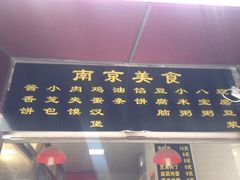 南京美食
酱香饼
小笼包
肉夹馍
鸡蛋汉堡
油条
馅饼
豆腐脑
小米粥
八宝粥
豆浆